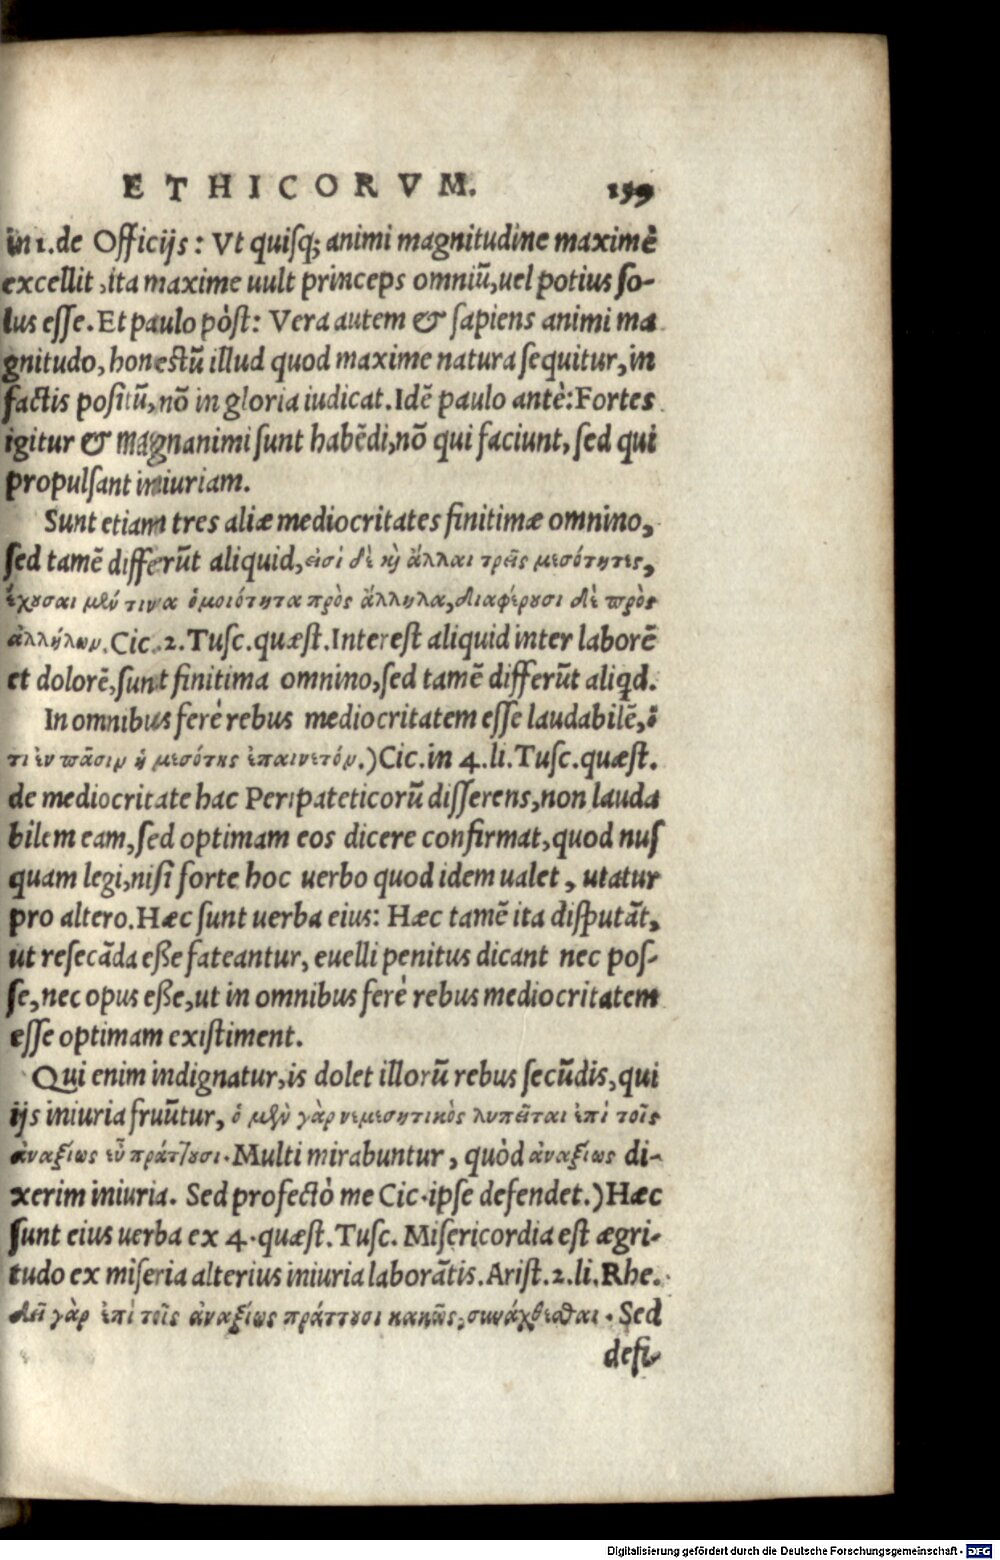 ETHICORVM. 159
in 1. de Officijs: Vt quisq; animi magnitudine maximè
excellit, ita maxime uult princeps omniũ, uel potius so-
lus esse. Et paulo pòst: Vera autem & sapiens animi ma
gnitudo, honestũ illud quod maxime natura sequitur, in
factis positũ, nõ in gloria iudicat. Idẽ paulo antè: Fortes
igitur & magnanimi sunt habẽdi, nõ qui faciunt, sed qui
propulsant iniuriam.
Sunt etiam tres aliæ mediocritates finitimæ omnino,
sed tamẽ differũt aliquid, εἰσὶ δὲ κỳ ἄλλαι τρεῖς μεσότητες,
ἔχουσαι μὲν τινα ὁμοιότητα πρὸς ἄλληλα, διαφέρουσι δὲ πρὸς
ἀλλήλων. Cic. 2. Tusc. quæst. Interest aliquid inter laborẽ
et dolorẽ, sunt finitima omnino, sed tamẽ differũt aliqd.
In omnibus ferè rebus mediocritatem esse laudabilẽ, ὅ
τι ἐν πᾶσιν ἡ μεσότης ἐπαινετόν.) Cic. in 4. li. Tusc. quæst.
de mediocritate hac Peripateticorũ disserens, non lauda
bilem eam, sed optimam eos dicere confirmat, quod nus
quam legi, nisi forte hoc uerbo quod idem ualet, utatur
pro altero. Hæc sunt uerba eius: Hæc tamẽ ita disputãt,
ut resecãda eße fateantur, euelli penitus dicant nec pos-
se, nec opus eße, ut in omnibus ferè rebus mediocritatem
esse optimam existiment.
Qui enim indignatur, is dolet illorũ rebus secũdis, qui
ijs iniuria fruũtur, ὁ μὲν γὰρ νεμεσητικὸς λυπεῖται ἐπὶ τοῖς
ἀναξίως εὖ πράττουσι. Multi mirabuntur, quòd ἀναξίως di-
xerim iniuria. Sed profectò me Cic. ipse defendet.) Hæc
sunt eius uerba ex 4. quæst. Tusc. Misericordia est ægri-
tudo ex miseria alterius iniuria laborãtis. Arist. 2. li. Rhe.
δεῖ γὰρ ἐπὶ τοῖς ἀναξίως πράττουσι κακῶς, συνάχθεσθαι. Sed
defi-
Digitalisierung gefördert durch die Deutsche Forschungsgemeinschaft - DFG